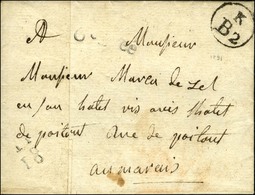 A Monsieur
K
B2
Monsieur Marca de Zel
en son hotel vis avis l'hotel
de poitout rue de poitout
au marais